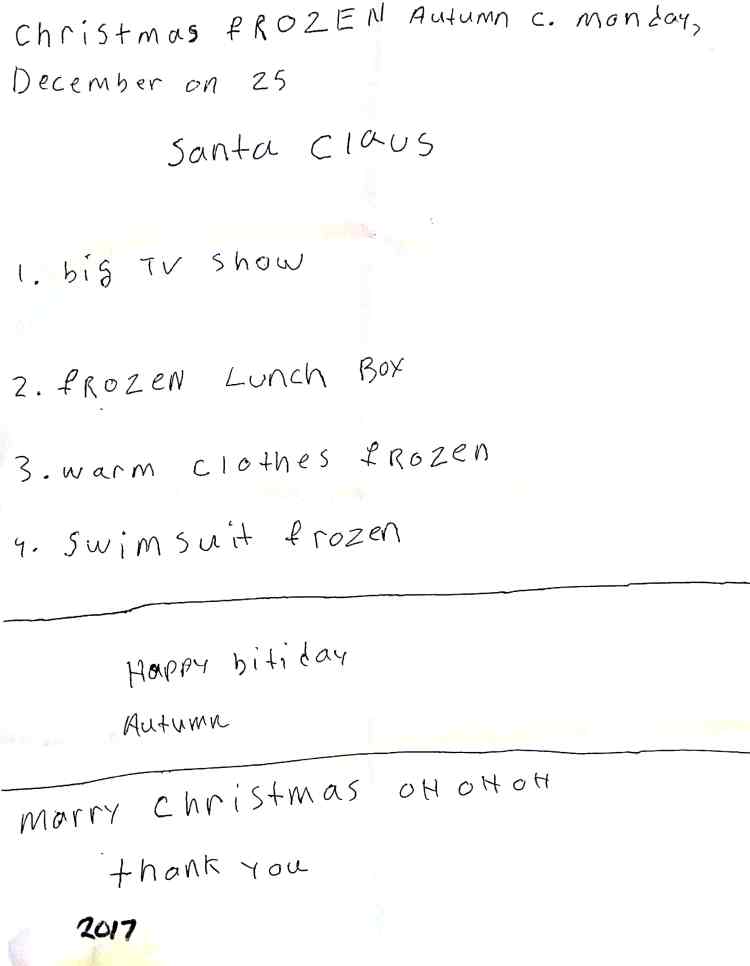 Christmas fROZEN Autumn c. monday,
December on 25
Santa Claus
1. big TV show
2. fROZEN Lunch Box
3. warm clothes fROZEN
4. Swimsuit frozen
Happy bitiday
Autumn
marry christmas OH OH OH
thank you
2017